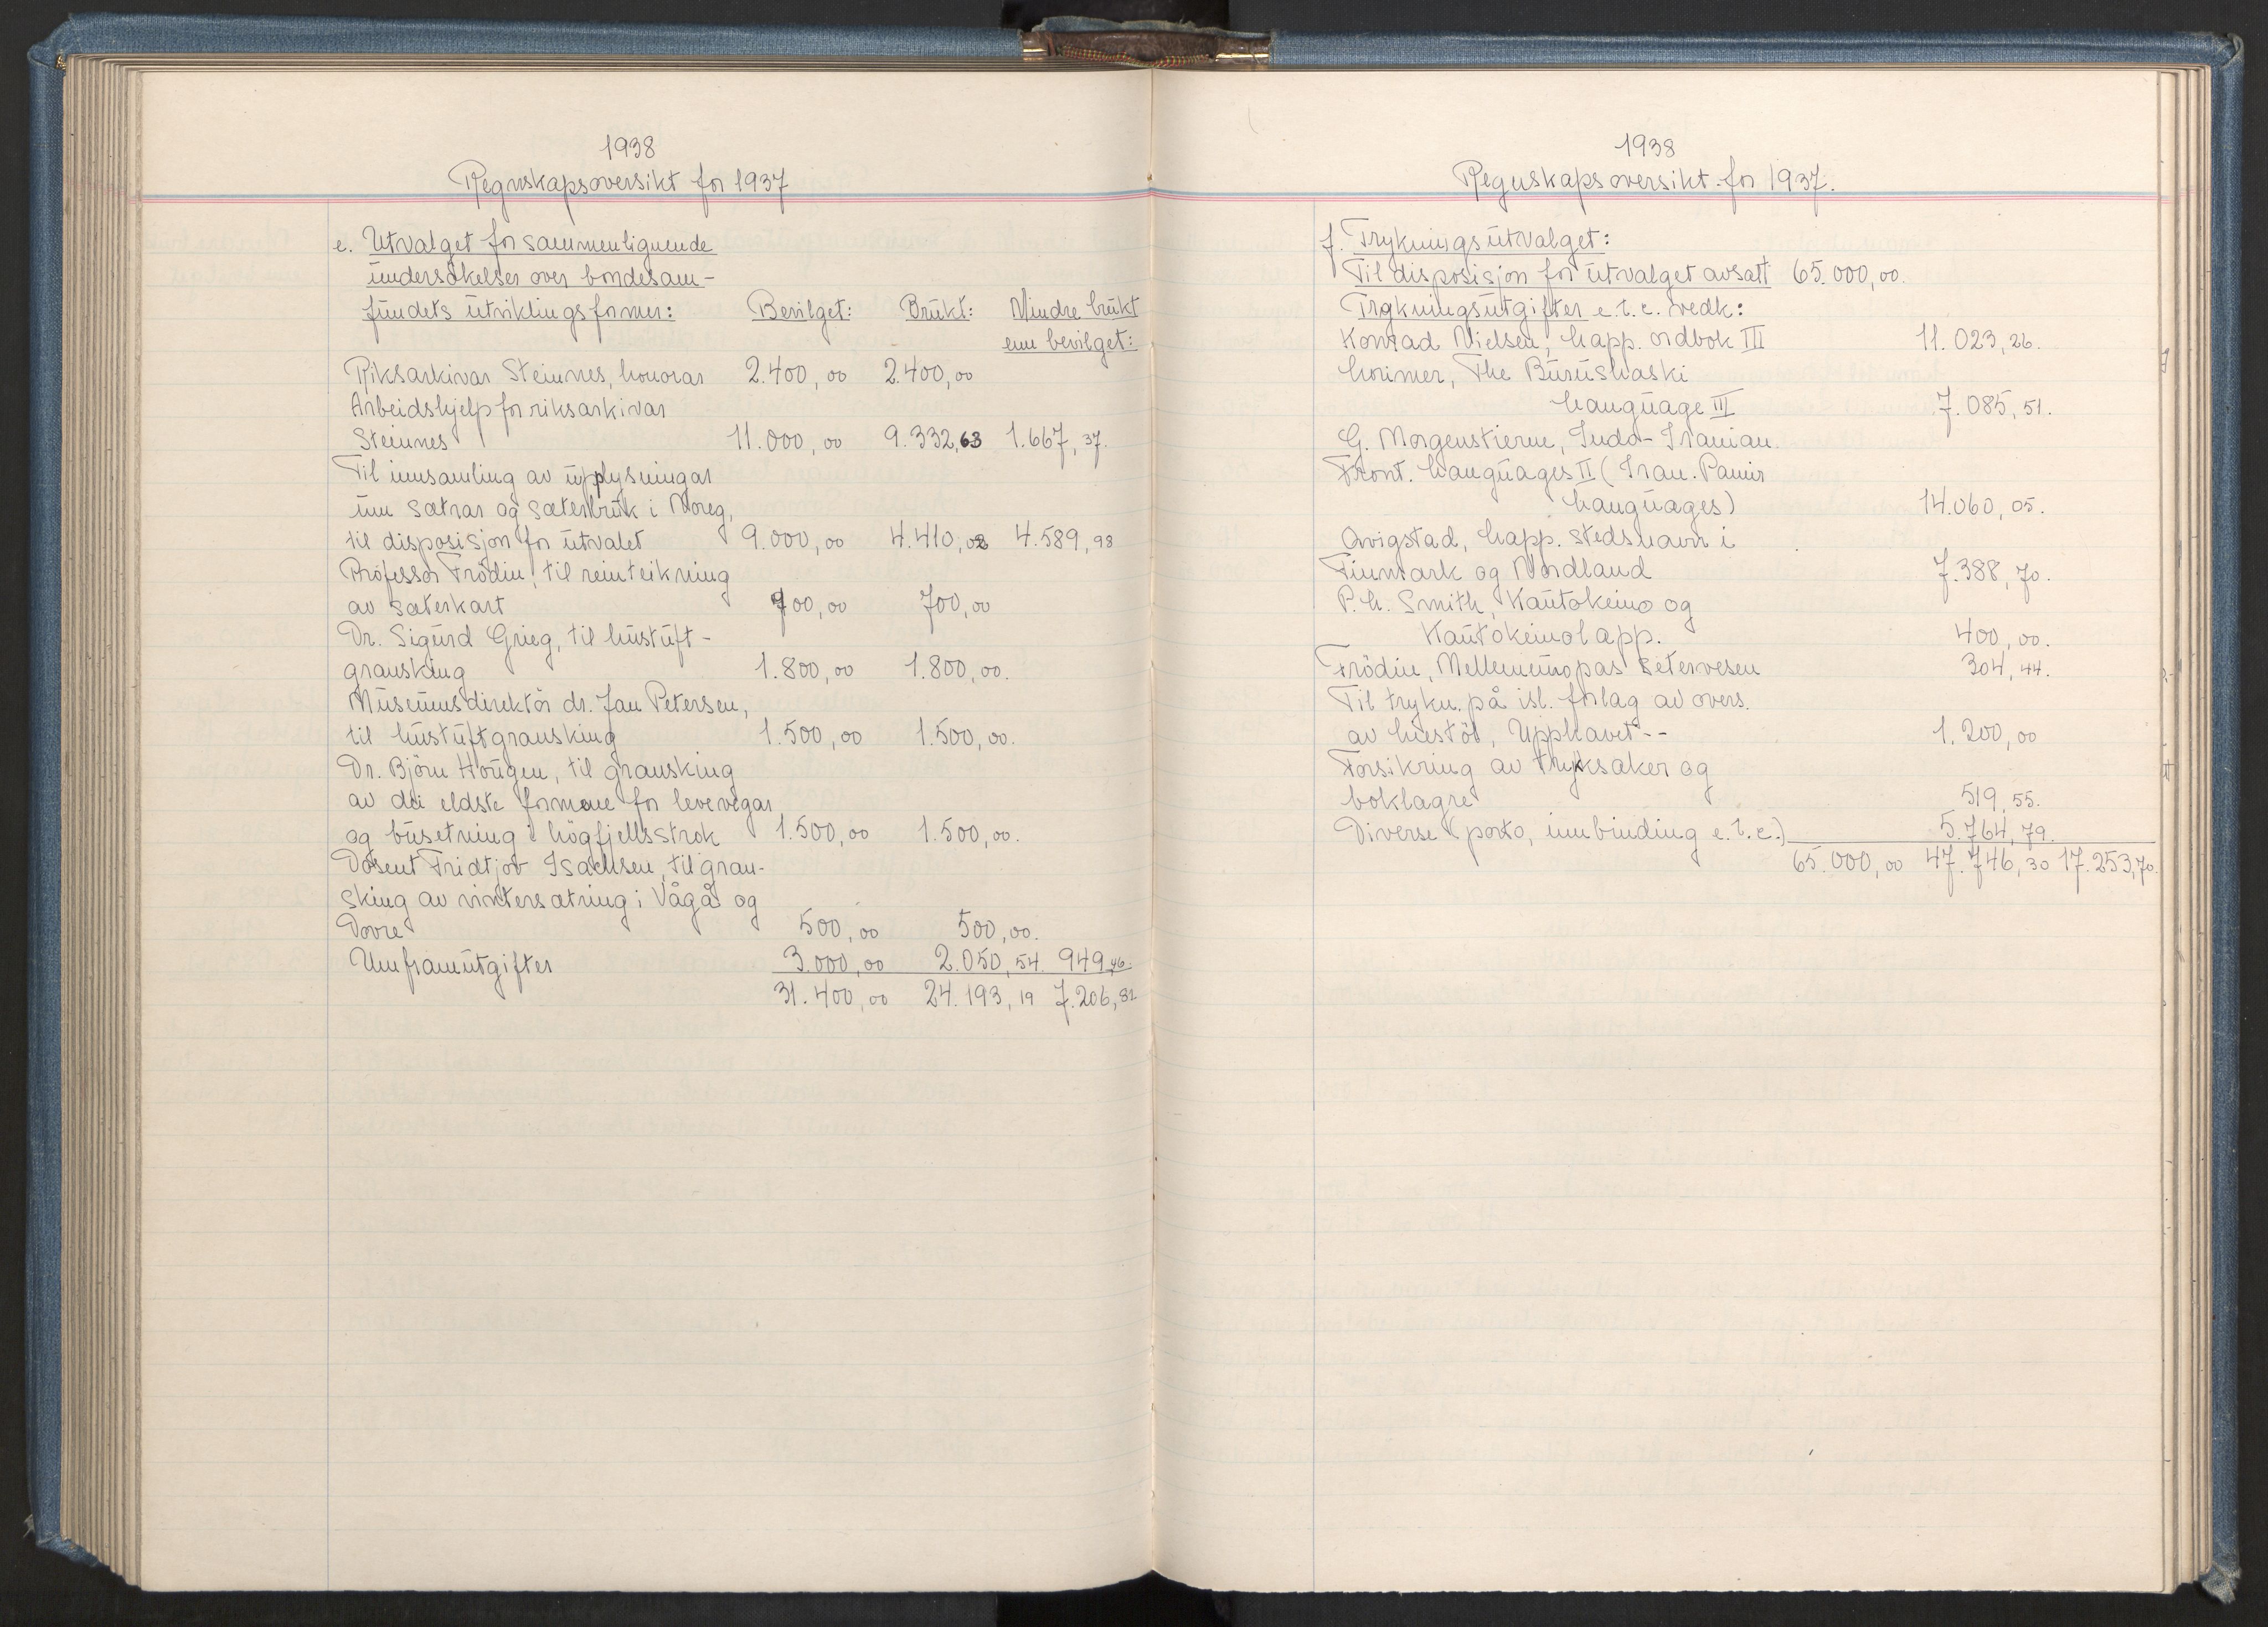 1938
Regnskapsoversikt for 1937
e. Utvalget for sammenlignende
undersökelser over bondesam-
fundets utviklingsformer: Bevilget: Brukt: Mindre brukt
enn bevilget:
Riksarkivar Steinnes, honorar 2.400,00 2.400,00
Arbeidshjelp for riksarkivar
Steinnes 11.000,00 9.332,63 1.667,37.
Til innsamling av upplysningar
um sætrar og sæterbruk i Noreg,
til disposisjon for utvalet 9.000,00 4.410,02 4.589,98
Professor Frödin, til reinteikning
av sæterkart 700,00 700,00
Dr. Sigurd Grieg, til hustuft-
gransking 1.800,00 1.800,00.
Museumsdirektör dr. Jan Petersen,
til hustuftgransking 1.500,00 1.500,00.
Dr. Björn Hougen, til gransking
av dei eldste formene for levevegar
og busetning i högfjellsstrok 1.500,00 1.500,00.
Dosent Fridtjov Isachsen, til gran-
sking av vintersætring i Vågå og
Dovre 500,00 500,00.
Umframutgifter 3.000,00 2.050,54 949,46.
31.400,00 24.193,19 7.206,81
1938
Regnskapsoversikt for 1937.
f. Trykningsutvalget:
Til disposisjon for utvalget avsatt 65.000,00.
Trykningsutgifter e.t.c. vedk:
Konrad Nielsen, Lapp. ordbok III 11.023,26.
Lorimer, The Burushaski
Language III 7.085,51.
G. Morgenstierne, Indo-Iranian
Front. Languages II (Iran. Pamir
Languages) 14.060,05.
Qvigstad, Lapp. stedsnavn i
Finmark og Nordland 7.388,70.
P.L. Smith, Kautokeino og
Kautokeinolapp. 400,00.
Frödin, Mellemeuropas setervesen 304,44.
Til trykn. på isl. forlag av overs.
av Liestöl, Upphavet-- 1.200,00
Forsikring av tryksaker og
boklagre 519,55.
Diverse (porto, innbinding e.t.c.) 5.764,79.
65.000,00 47.746,30 17.253,70.